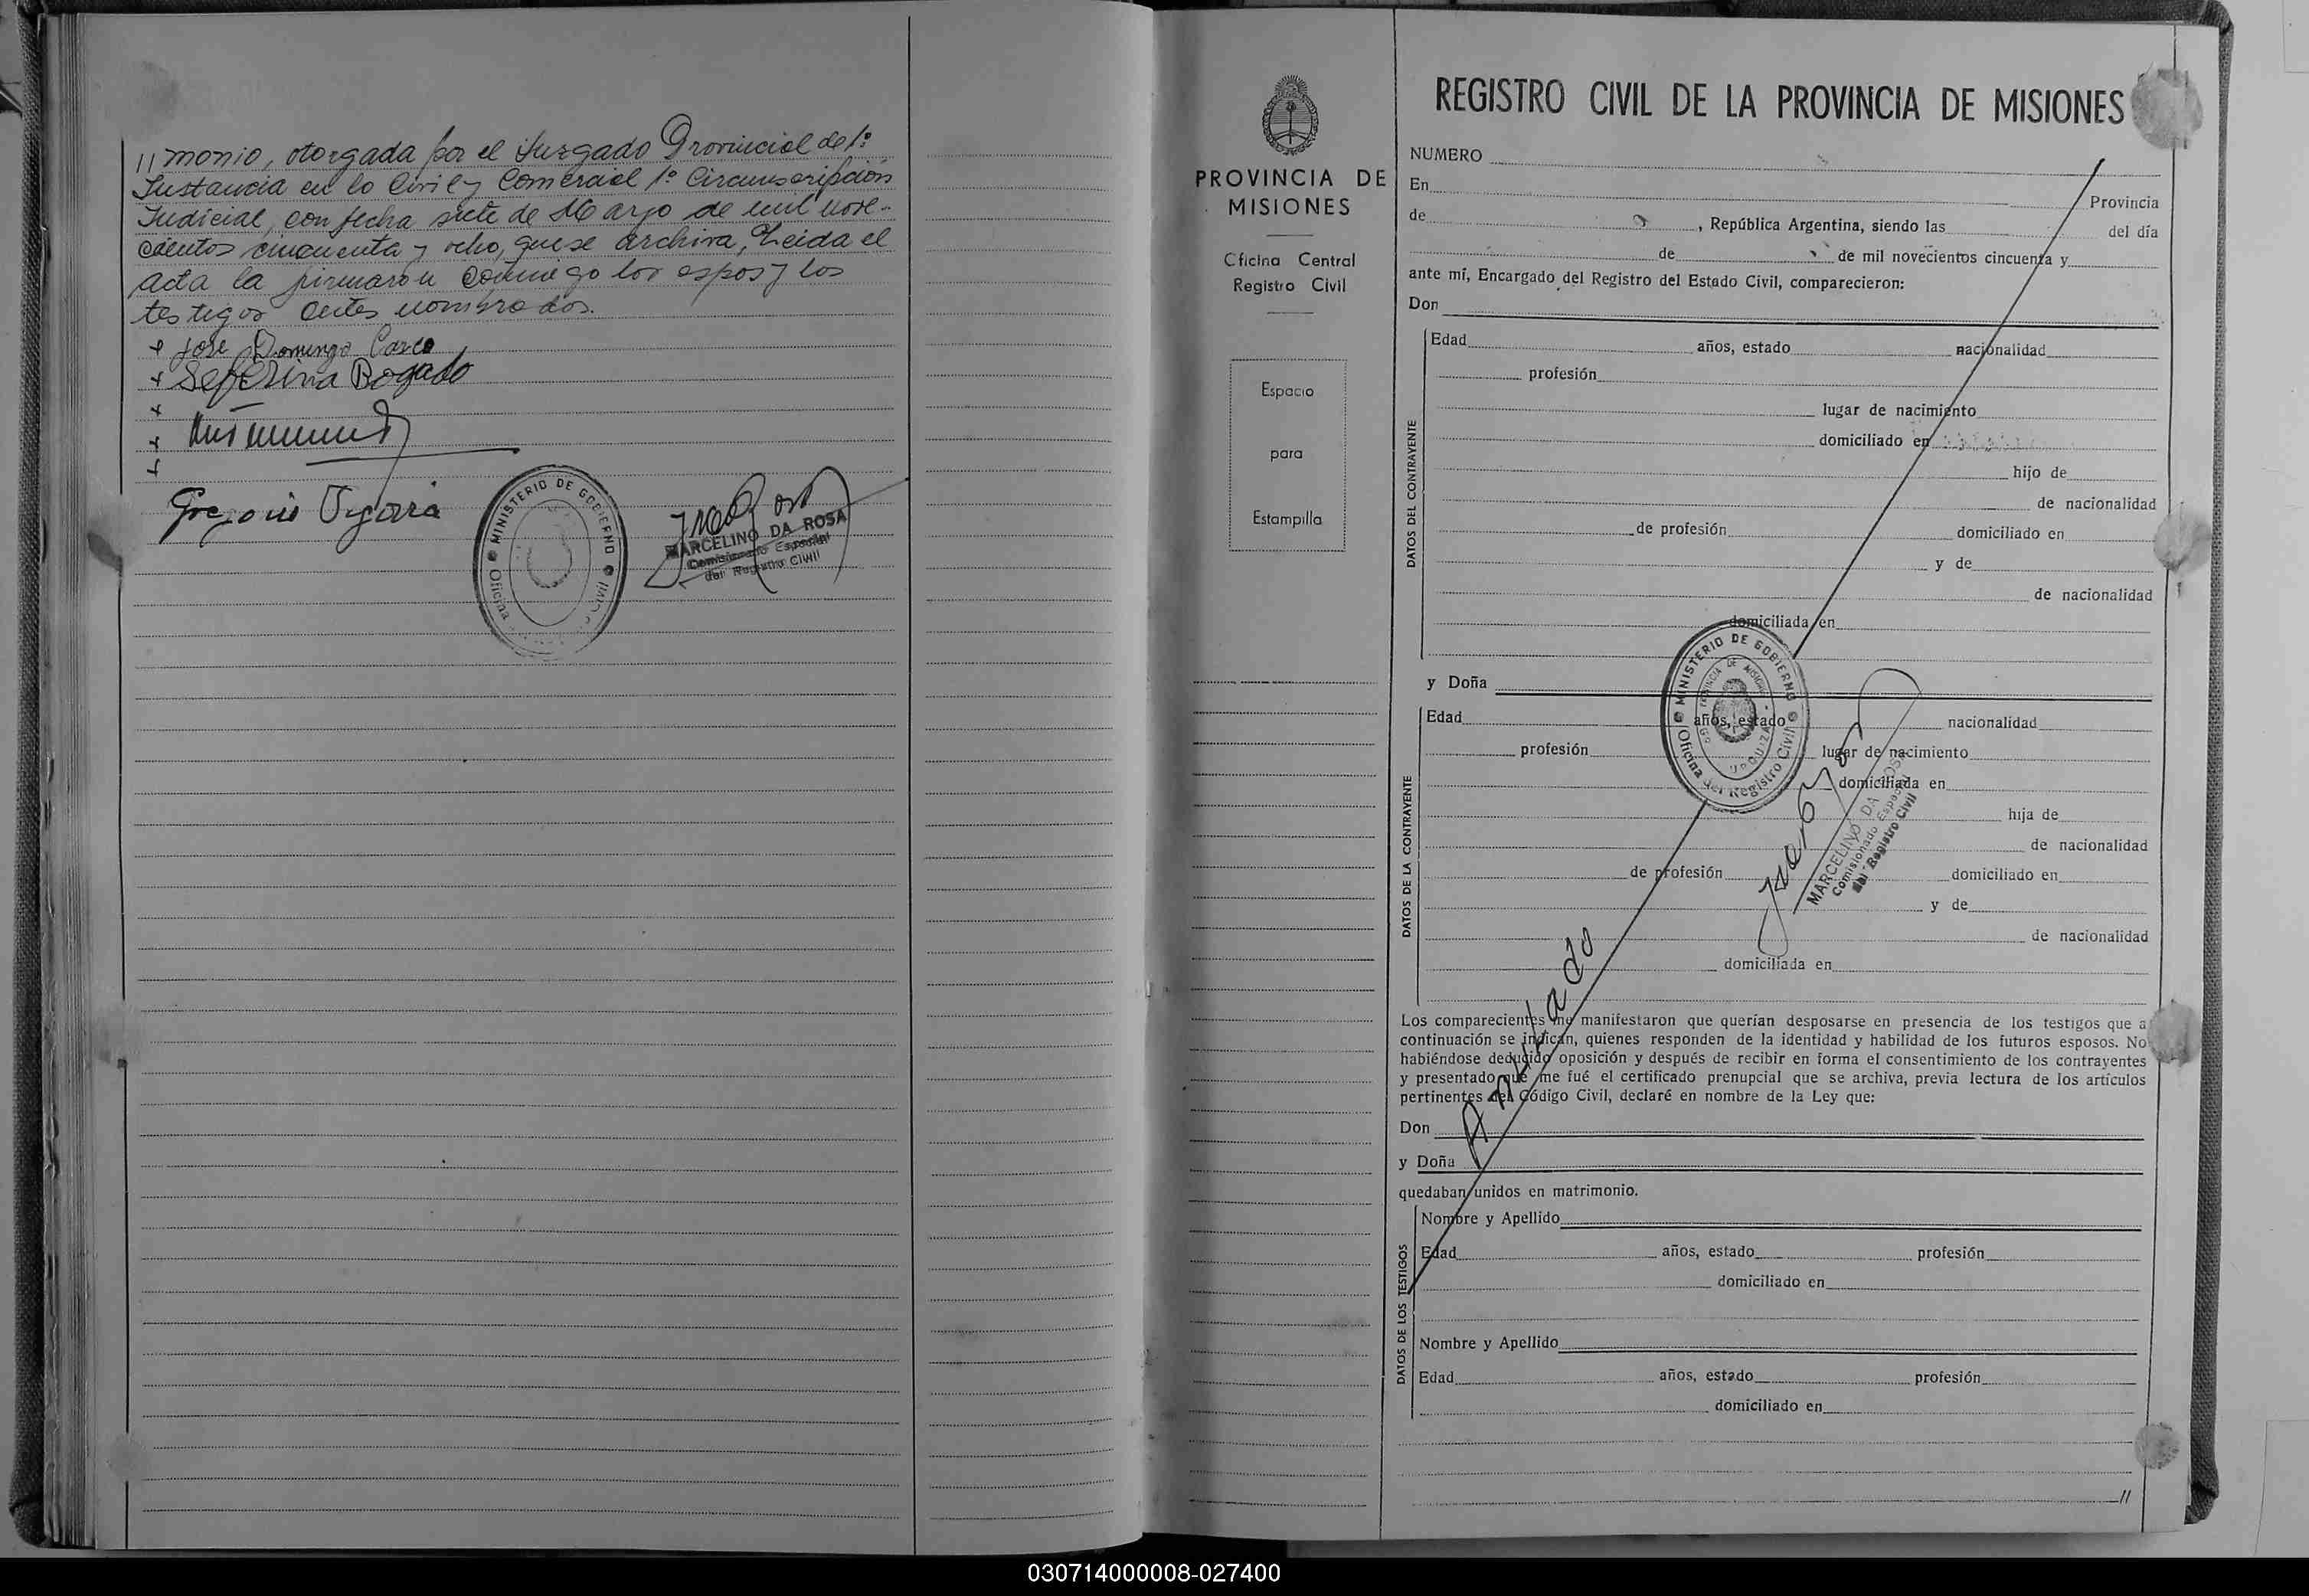 // monio, otorgada por el Juzgado Provincial de 1º
Instancia en lo Civil y Comercial 1º Circunscripción
Judicial, con fecha siete de Marzo de mil nove-
cientos cincuenta y ocho, que se archiva, Leida el
acta la firmaron conmigo los espos y los
testigos antes nombrados.
+ José Domingo
+ Seferina Bogado
+
+
+
Gregorio
MINISTERIO DE GOBIERNO
Oficina
MARCELINO DA ROSA
Comisionado Especial
del Registro Civil
PROVINCIA DE
MISIONES
Oficina Central
Registro Civil
Espacio
para
Estampilla
REGISTRO CIVIL DE LA PROVINCIA DE MISIONES
NUMERO
En Provincia
de , República Argentina, siendo las del día
de de mil novecientos cincuenta y
ante mí, Encargado del Registro del Estado Civil, comparecieron:
Don
DATOS DEL CONTRAYENTE
Edad años, estado nacionalidad
profesión
lugar de nacimiento
domiciliado en
hijo de
de nacionalidad
de profesión domiciliado en
y de
de nacionalidad
domiciliada en
y Doña
DATOS DE LA CONTRAYENTE
Edad años, estado nacionalidad
profesión lugar de nacimiento
domiciliada en
hija de
de nacionalidad
de profesión domiciliado en
y de
de nacionalidad
domiciliada en
MINISTERIO DE GOBIERNO
Oficina del Registro Civil
PROVINCIA DE MISIONES
MARCELINO DA ROSA
Comisionado Especial
del Registro Civil
Anulado
Los comparecientes me manifestaron que querían desposarse en presencia de los testigos que a
continuación se indican, quienes responden de la identidad y habilidad de los futuros esposos. No
habiéndose deducido oposición y después de recibir en forma el consentimiento de los contrayentes
y presentado que me fué el certificado prenupcial que se archiva, previa lectura de los artículos
pertinentes del Código Civil, declaré en nombre de la Ley que:
Don
y Doña
quedaban unidos en matrimonio.
DATOS DE LOS TESTIGOS
Nombre y Apellido
Edad años, estado profesión
domiciliado en
Nombre y Apellido
Edad años, estado profesión
domiciliado en
//
030714000008-027400